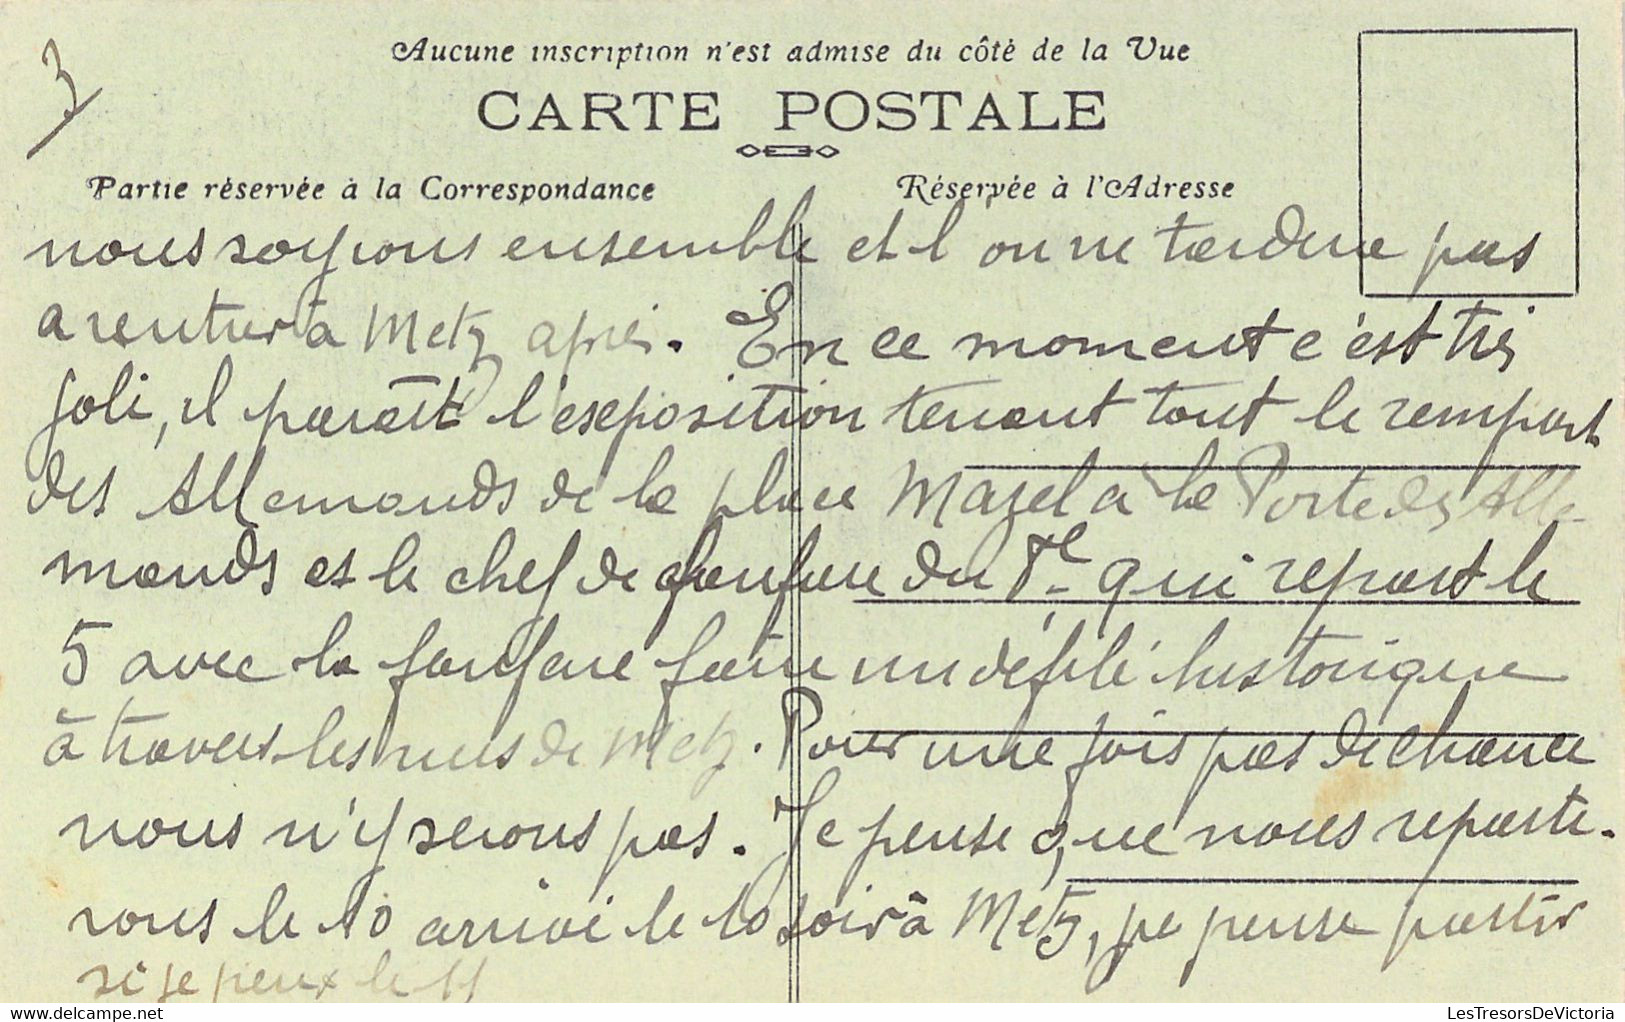 3
Aucune inscription n'est admise du côté de la Vue
CARTE POSTALE
Partie réservée à la Correspondance
Réservée à l'Adresse
nous soyions ensemble et l'on ne tardera pas
a rentrer à Metz après. En ce moment c'est très
joli, il paraît l'exposition tenant tout le rempart
des Allemands de la place Mazel a la Porte des Alle-
mands et le chef de fanfare du 8e qui repart le
5 avec la fanfare faire un défilé historique
à travers les rues de Metz. Pour une fois pas de chance
nous n'y serons pas. Je pense que nous reparti-
rons le 10 arrivé le 10 soir à Metz, je pense partir
si je peux le 11
www.delcampe.net
LesTresorsDeVictoria